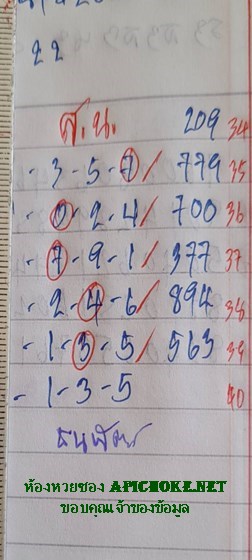 22
ส.น. 209 34
- 3 - 5 - 7 / 779 35
- 0 - 2 - 4 / 700 36
- 7 - 9 - 1 / 377 37
- 2 - 4 - 6 / 894 38
- 1 - 3 - 5 / 563 39
- 1 - 3 - 5 40
ห้องหวยซอง APICHOKE.NET
ขอบคุณเจ้าของข้อมูล